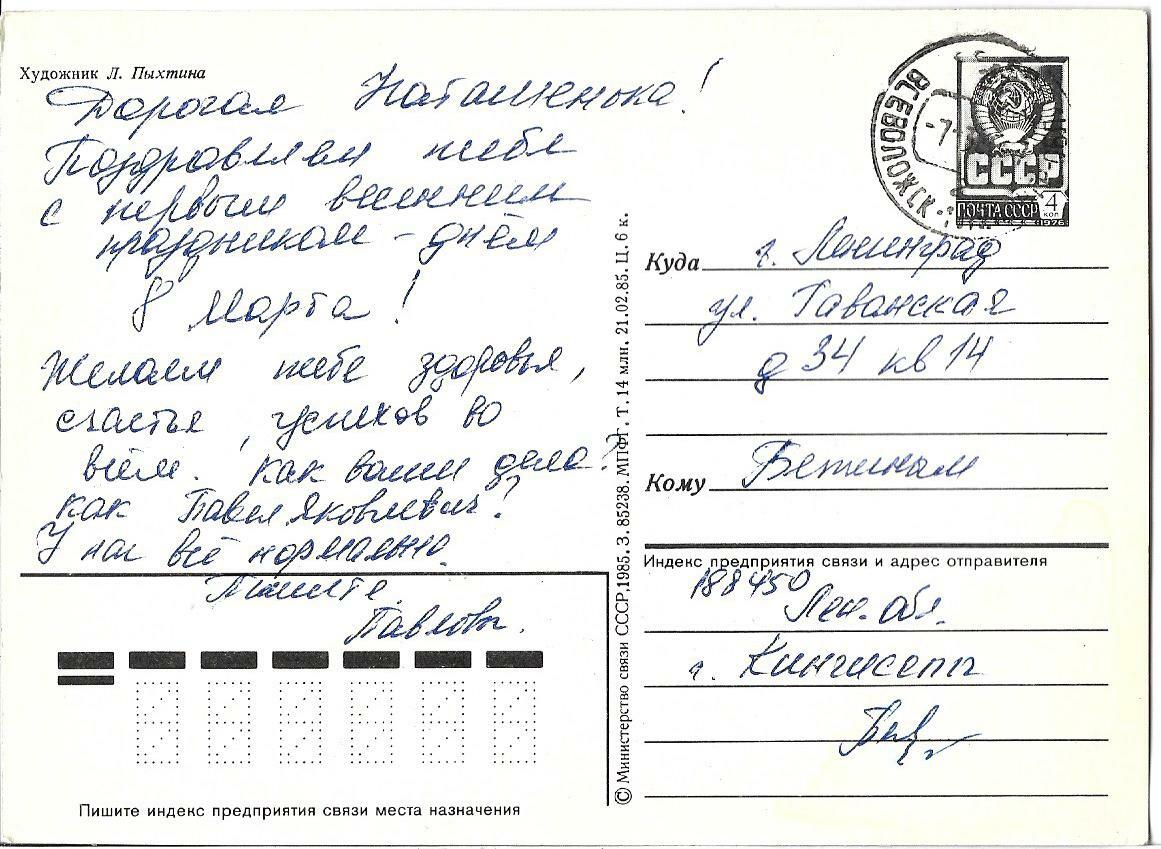 Художник Л. Пыхтина
Дорогая Наташенька!
Поздравляем тебя
с первым весенним
праздником – днём
8 Марта!
Желаем тебе здоровья,
счастья, успехов во
всём. Как ваши дела?
Как Павел Яковлевич?
У нас всё нормально.
Пишите.
Павловы.
Пишите индекс предприятия связи места назначения
© Министерство связи СССР, 1985. З. 85238. МПФГ. Т. 14 млн. 21.02.85. Ц. 6 к.
ВСЕВОЛОЖСК
-7-
СССР
ПОЧТА СССР 4 КОП
1978
Куда г. Ленинград
ул. Гаванская
д 34 кв 14
Кому Бетиным
Индекс предприятия связи и адрес отправителя
188450
Лен. обл.
г. Кингисепп